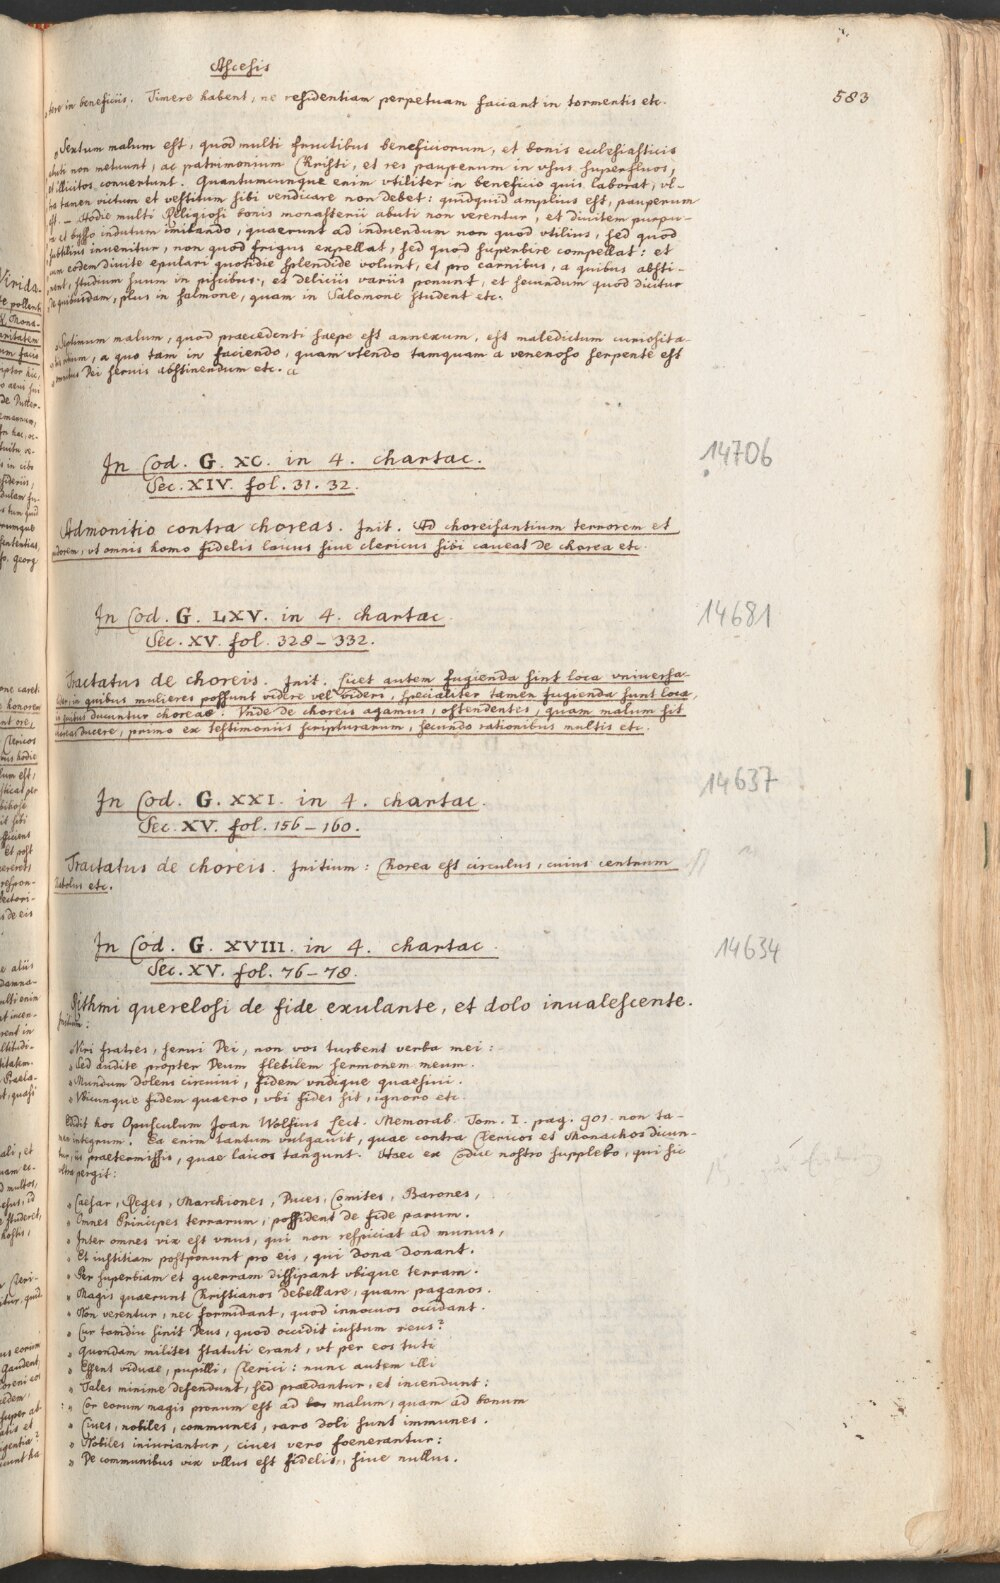 Ascesis
583
in beneficiis. Timere habent, ne residentiam perpetuam faciant in tormentis etc.
„Sextum malum est, quod multi fructibus beneficiorum, et bonis ecclesiasticis
abuti non metuunt, ac patrimonium Christi, et res pauperum in vsus superfluos,
et illicitos conuertunt. Quantumcunque enim vtiliter in beneficio quis laborat, vl-
tra tamen victum et vestitum sibi vendicare non debet: quidquid amplius est, pauperum
est. — Hodie multi Religiosi bonis monasterii abuti non verentur, et diuitem purpu-
ra et bysso indutum imitando, quaerunt ad induendum non quod vtilius, sed quod
subtilius inuenitur, non quod frigus expellat, sed quod superbire compellat: et
cum eodem diuite epulari quotidie splendide volunt, et pro carnibus, a quibus absti-
nent, studium suum in piscibus, et deliciis variis ponunt, et secundum quod dicitur
de quibusdam, plus in salmone, quam in Salomone student etc.
„Septimum malum, quod praecedenti saepe est annexum, est maledictum curiosita-
tis vitium, a quo tam in faciendo, quam vtendo tamquam a venenoso serpente est
omnibus Dei seruis abstinendum etc. „
In Cod. G. XC. in 4. chartac.
14706
Sec. XIV. fol. 31. 32.
Admonitio contra choreas. Init. Ad choreisantium terrorem et
, vt omnis homo fidelis laicus siue clericus sibi caueat de chorea etc.
In Cod. G. LXV. in 4. chartac.
14681
Sec. XV. fol. 328–332.
Tractatus de choreis. Init. Licet autem fugienda sint loca vniuersa-
liter in quibus mulieres possunt videre vel videri, specialiter tamen fugienda sunt loca,
in quibus ducuntur choreae. Vnde de choreis agamus, ostendentes, quam malum sit
choreas ducere, primo ex testimoniis scripturarum, secundo rationibus multis etc.
In Cod. G. XXI. in 4. chartac.
14637
Sec. XV. fol. 156–160.
Tractatus de choreis. Initium: Chorea est circulus, cuius centrum
diabolus etc.
In Cod. G. XVIII. in 4. chartac.
14634
Sec. XV. fol. 76–78.
Rithmi querelosi de fide exulante, et dolo inualescente.
Initium:
„Viri fratres, serui Dei, non vos turbent verba mei:
„Sed audite propter Deum flebilem sermonem meum.
„Mundum dolens circuiui, fidem vndique quaesiui.
„Vbicunque fidem quaero, vbi fides sit, ignoro etc.
Edidit hoc Opusculum Joan Wolfius Lect. Memorab. Tom. I. pag. 901. non ta-
men integrum. Ea enim tantum vulgauit, quae contra Clericos et Monachos dicun-
tur, iis praetermissis, quae laicos tangunt. Haec ex Codice nostro supplebo, qui sic
vltra pergit:
„Caesar, Reges, Marchiones, Duces, Comites, Barones,
„Omnes Principes terrarum, possident de fide parum.
„Inter omnes vix est vnus, qui non respiciat ad munus,
„Et iustitiam postponunt pro eis, qui dona donant.
„Per superbiam et guerram dissipant vbique terram.
„Magis quaerunt Christianos debellare, quam paganos.
„Non verentur, nec formidant, quod innocuos occidant.
„Cur tamdiu sinit Deus, quod occidit iustum reus?
„Quondam milites statuti erant, vt per eos tuti
„Essent viduae, pupilli, Clerici: nunc autem illi
„Tales minime defendunt, sed praedantur, et incendunt:
„Cor eorum magis pronum est ad malum, quam ad bonum
„Ciues, nobiles, communes, raro doli sunt immunes.
„Nobiles iniuriantur, ciues vero foenerantur:
„De communibus vix vllus est fidelis, siue nullus.